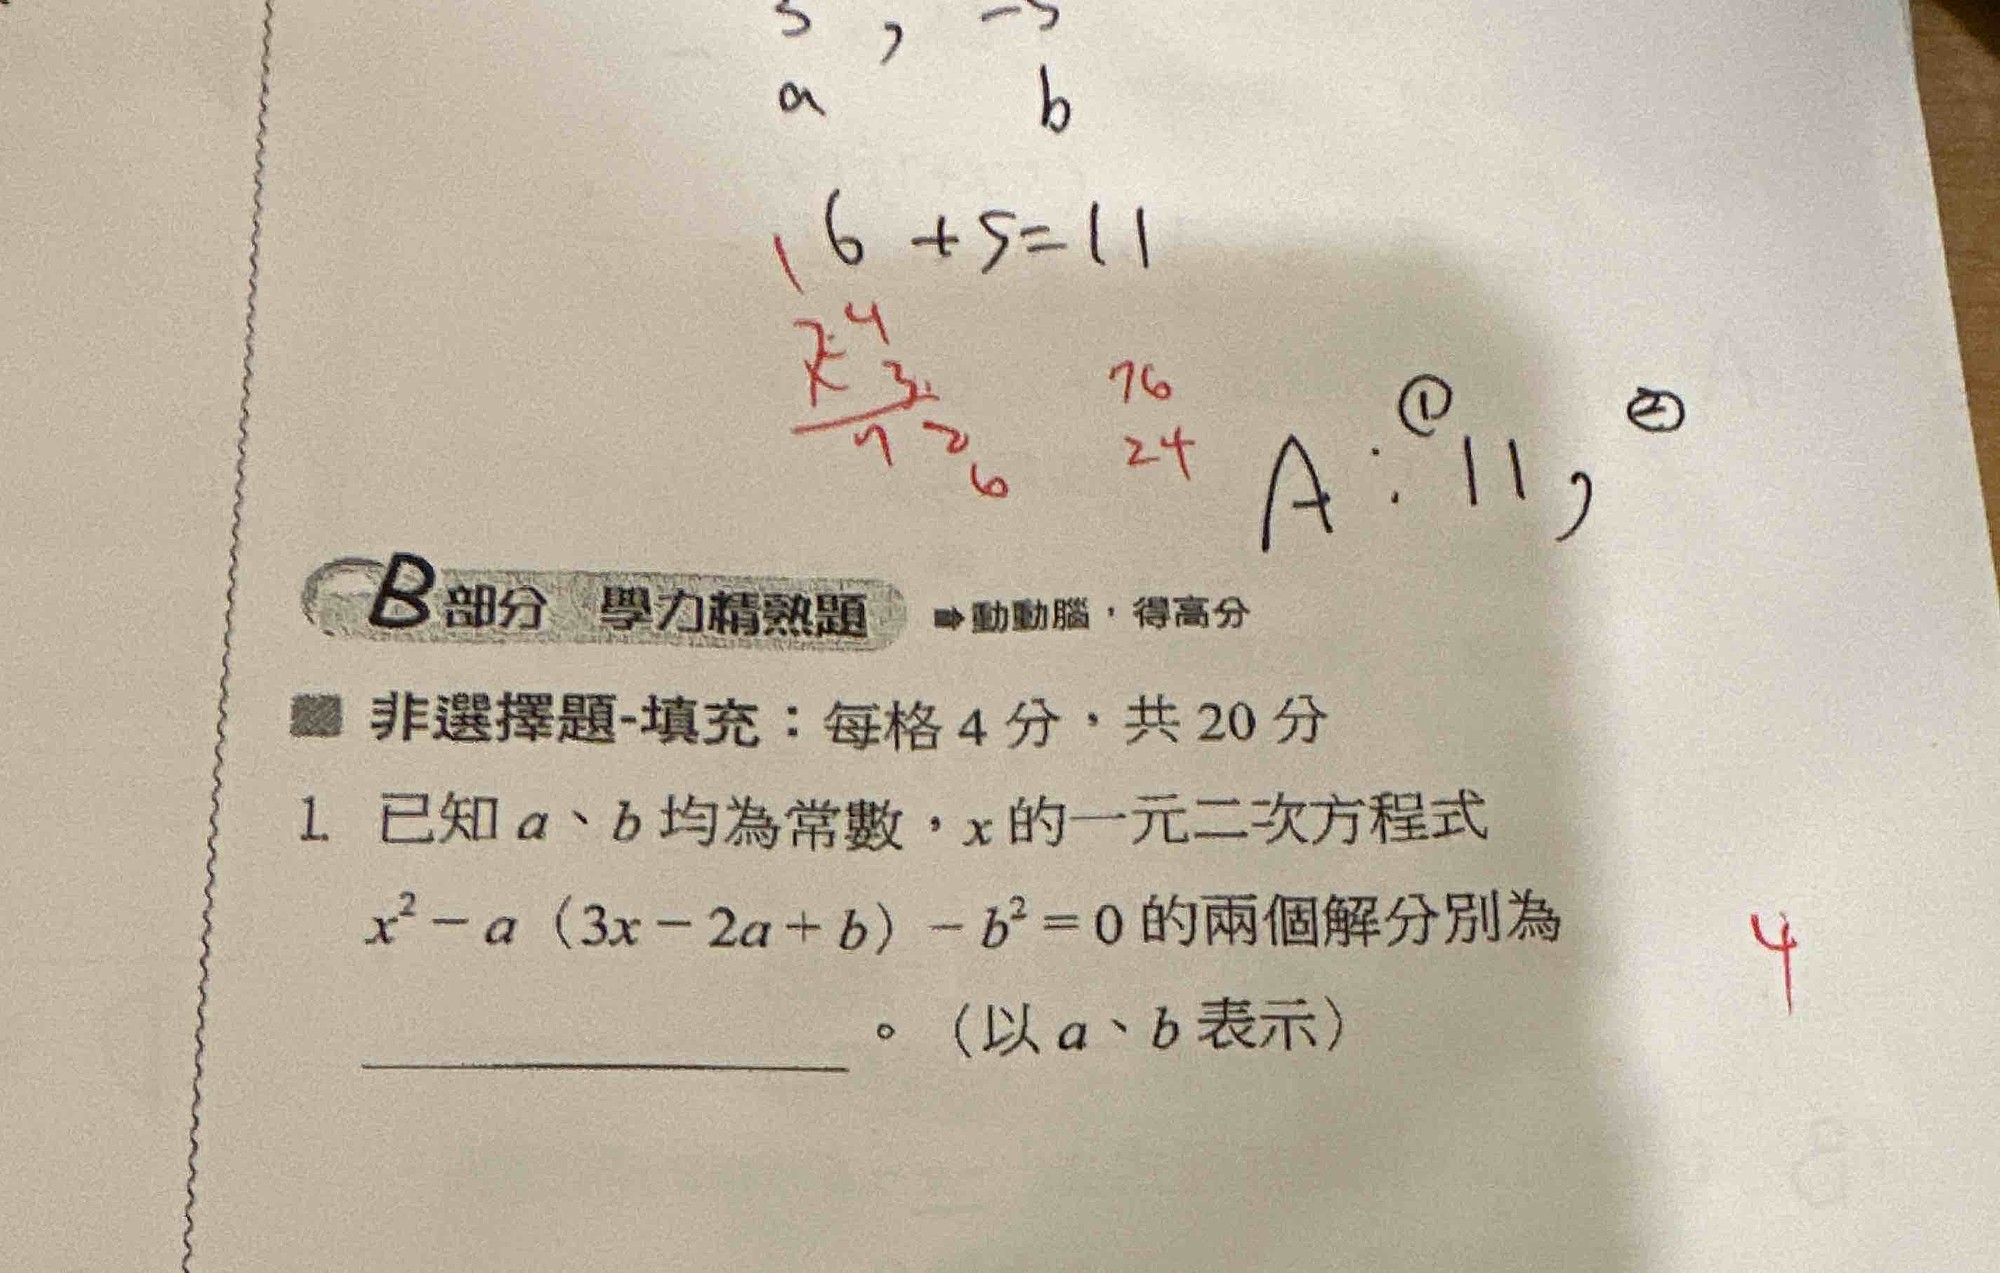 a b
6 + 5 = 11
1
4
3
7 2 6
76
24
A : ① 11 , ②
B 部分 學力精熟題 ➡動動腦，得高分
■ 非選擇題-填充：每格 4 分，共 20 分
1. 已知 a、b 均為常數，x 的一元二次方程式
x² − a（3x − 2a + b）− b² = 0 的兩個解分別為
4
________。（以 a、b 表示）